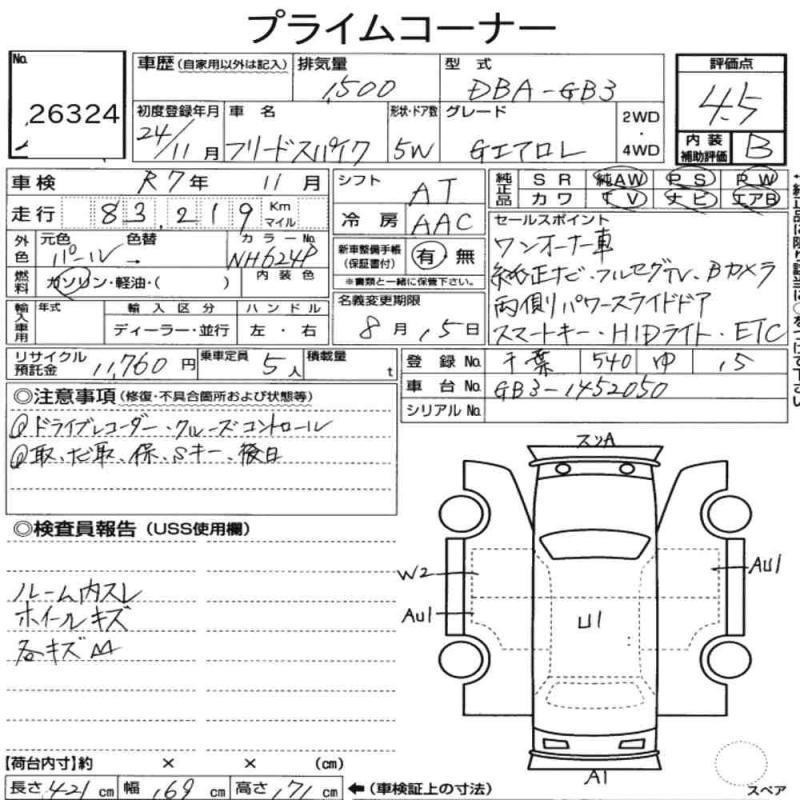 プライムコーナー
No. 26324
車歴 (自家用以外は記入) 排気量 1,500 型式 DBA-GB3
評価点 4.5
初度登録年月 24/11月 車名 フリードスパイク 形状・ドア数 5W グレード Gエアロ 2WD・4WD
内装補助評価 B
車検 R7年 11月
走行 83,219 Km マイル
シフト AT
冷房 AAC
純正品 SR 純AW PS PW
カワ TV ナビ エアB
外色 元色 パール 色替 → カラーNo. NH624P
燃料 ガソリン・軽油・( ) 内装色
新車整備手帳(保証書付) 有・無
※書類と一緒に保管下さい。
セールスポイント
ワンオーナー車
純正ナビ・フルセグTV・Bカメラ
両側パワースライドドア
スマートキー・HIDライト・ETC
輸入車用 年式 輸入区分 ハンドル
ディーラー・並行 左・右
名義変更期限
8月15日
リサイクル預託金 11,760円 乗車定員 5人 積載量 t
登録No. 千葉 540 ゆ 15
車台No. GB3-1452050
シリアルNo.
◎注意事項 (修復・不具合箇所および状態等)
ドライブレコーダー、クルーズコントロール
取、ナビ取、保、Sキー、後日
◎検査員報告 (USS使用欄)
ルーム内スレ
ホイールキズ
各キズ
スリA
W2
AU1
AU1
U1
A1
スペア
【荷台内寸】約 × × (cm)
長さ 421 cm 幅 169 cm 高さ 171 cm ←(車検証上の寸法)